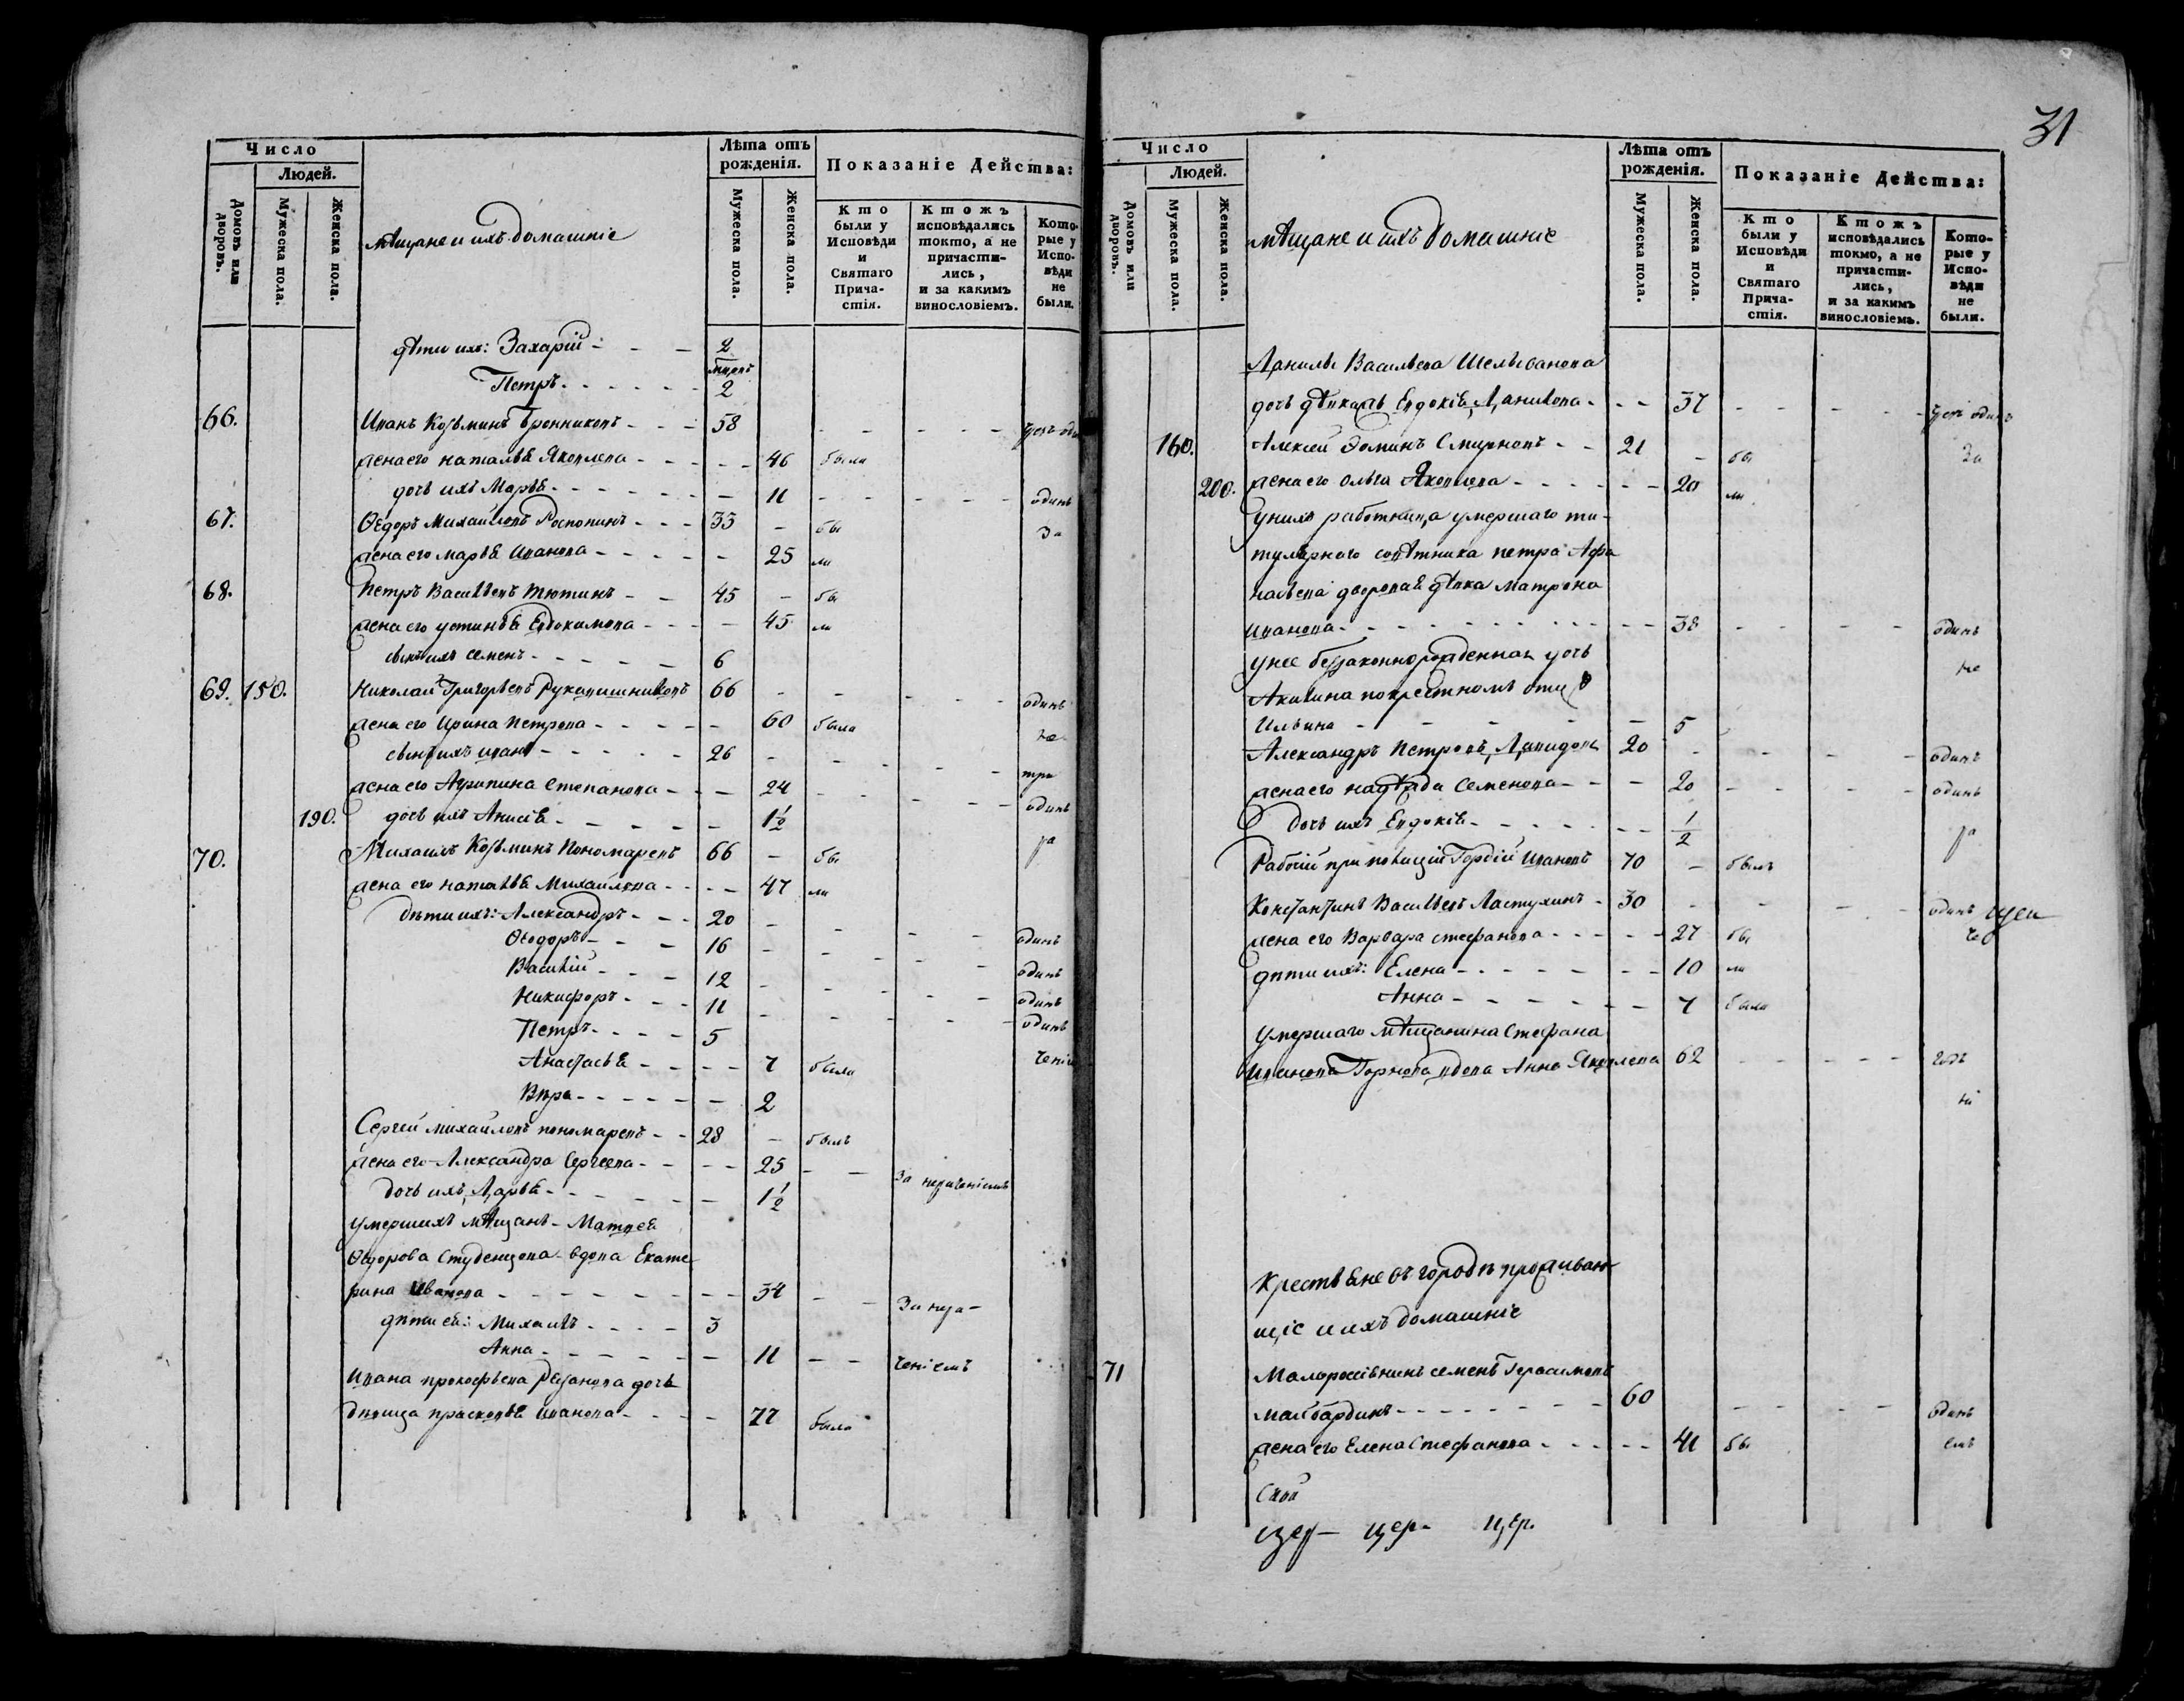 Число
Людей.
Домовъ или дворовъ.
Мужеска пола.
Женска пола.
мѣщане и ихъ домашніе
Лѣта отъ рожденія.
Мужеска пола.
Женска пола.
Показаніе Действа:
Кто были у Исповѣди и Святаго Причастія.
Ктожъ исповѣдались токмо, а не причастились, и за какимъ винословіемъ.
Которые у Исповѣди не были.
дѣти ихъ: Захарій - - - 2
Петръ - - - 2
66. Иванъ Козьминъ Бронниковъ - - - 58
жена его наталья Яковлева - - - 46 была
дочь ихъ Марья - - - 11 - - - одинъ
67. Ѳедоръ Михайловъ Распопинъ - - - 33 - бы За
жена его марья Иванова - - - 25 ли
68. Петръ Васильевъ Тютинъ - - 45 - бы
жена его устинья Евдокимова - - - 45 ли
сынъ ихъ семенъ - - - 6
69. 150. Николай Григорьевъ Рукавишниковъ 66 - - - одинъ
жена его Ирина Петрова - - - 60 была не
сынъ ихъ иванъ - - - 26 - - - три
жена его Агрипина Степанова - - - 24 - - - одинъ
190. дочь ихъ Анисья - - - 1½ ра
70. Михаилъ Козьминъ Пономаревъ 66 - бы
жена его наталья Михайлова - - - 47 ли
дѣти ихъ: Александръ - - - 20 - - - одинъ
Ѳеодоръ - - - 16 - - - одинъ
Василій - - - 12 - - - одинъ
Никифоръ - - - 11 - - - одинъ
Петръ - - - 5
Анастасья - - - 7 была ченію
Вѣра - - - 2
Сергей михайловъ пономаревъ - - 28 - былъ
жена его Александра Сергеева - - - 25 - - За нерачeніемъ
дочь ихъ Дарья - - - 1½
умершихъ мѣщанъ - Матвея
Ѳедорова Студенцова вдова Екате
рина Иванова - - - 34 - - За нера-
дѣти ея: Михаилъ - - - 3
Анна - - - 11 - - ченіемъ
Ивана прокофьева Резанова дочь
дѣвица прасковья иванова - - - 77 была
31
Число
Людей.
Домовъ или дворовъ.
Мужеска пола.
Женска пола.
мѣщане и ихъ домашніе
Лѣта отъ рожденія.
Мужеска пола.
Женска пола.
Показаніе Действа:
Кто были у Исповѣди и Святаго Причастія.
Ктожъ исповѣдались токмо, а не причастились, и за какимъ винословіемъ.
Которые у Исповѣди не были.
Данилы Васильева Шелыванова
дочь дѣвица Евдокія Данилова - - - 37 - - -
160. Алексей Фоминъ Смирновъ - - 21 - бы За
200. жена его Ольга Яковлева - - - 20 ли
у нихъ работница умершаго ти-
тулярнаго совѣтника петра Афа
насьева дворовая дѣвка Матрона
иванова - - - 38 - - - одинъ
у нее беззаконнорожденная дочь не
Акилина по крестномъ отцѣ
Ильина - - - 5
Александръ Петровъ Давидовъ 20 - - - одинъ
жена его надѣжда Семенова - - - 20 - - - одинъ
дочь ихъ Евдокія - - - ½ ра
Рабочій при полиціи Гордій Ивановъ 70 - былъ
Константинъ Васильевъ Ластухинъ - 30 - - - одинъ
жена его Варвара стефанова - - - 27 бы че
дѣти ихъ: Елена - - - 10 ли
Анна - - - 7 была
умершаго мѣщанина Стефана
Иванова Горнова вдова Анна Яковлева 62 - - -
ні
Крестьяне въ городѣ проживаю
щіе и ихъ домашніе
71 Малороссіянинъ семенъ Герасимовъ
Майбардинъ - - - 60 - - - одинъ
жена его Елена Стефанова - - - 41 бы емъ
цер- цер.